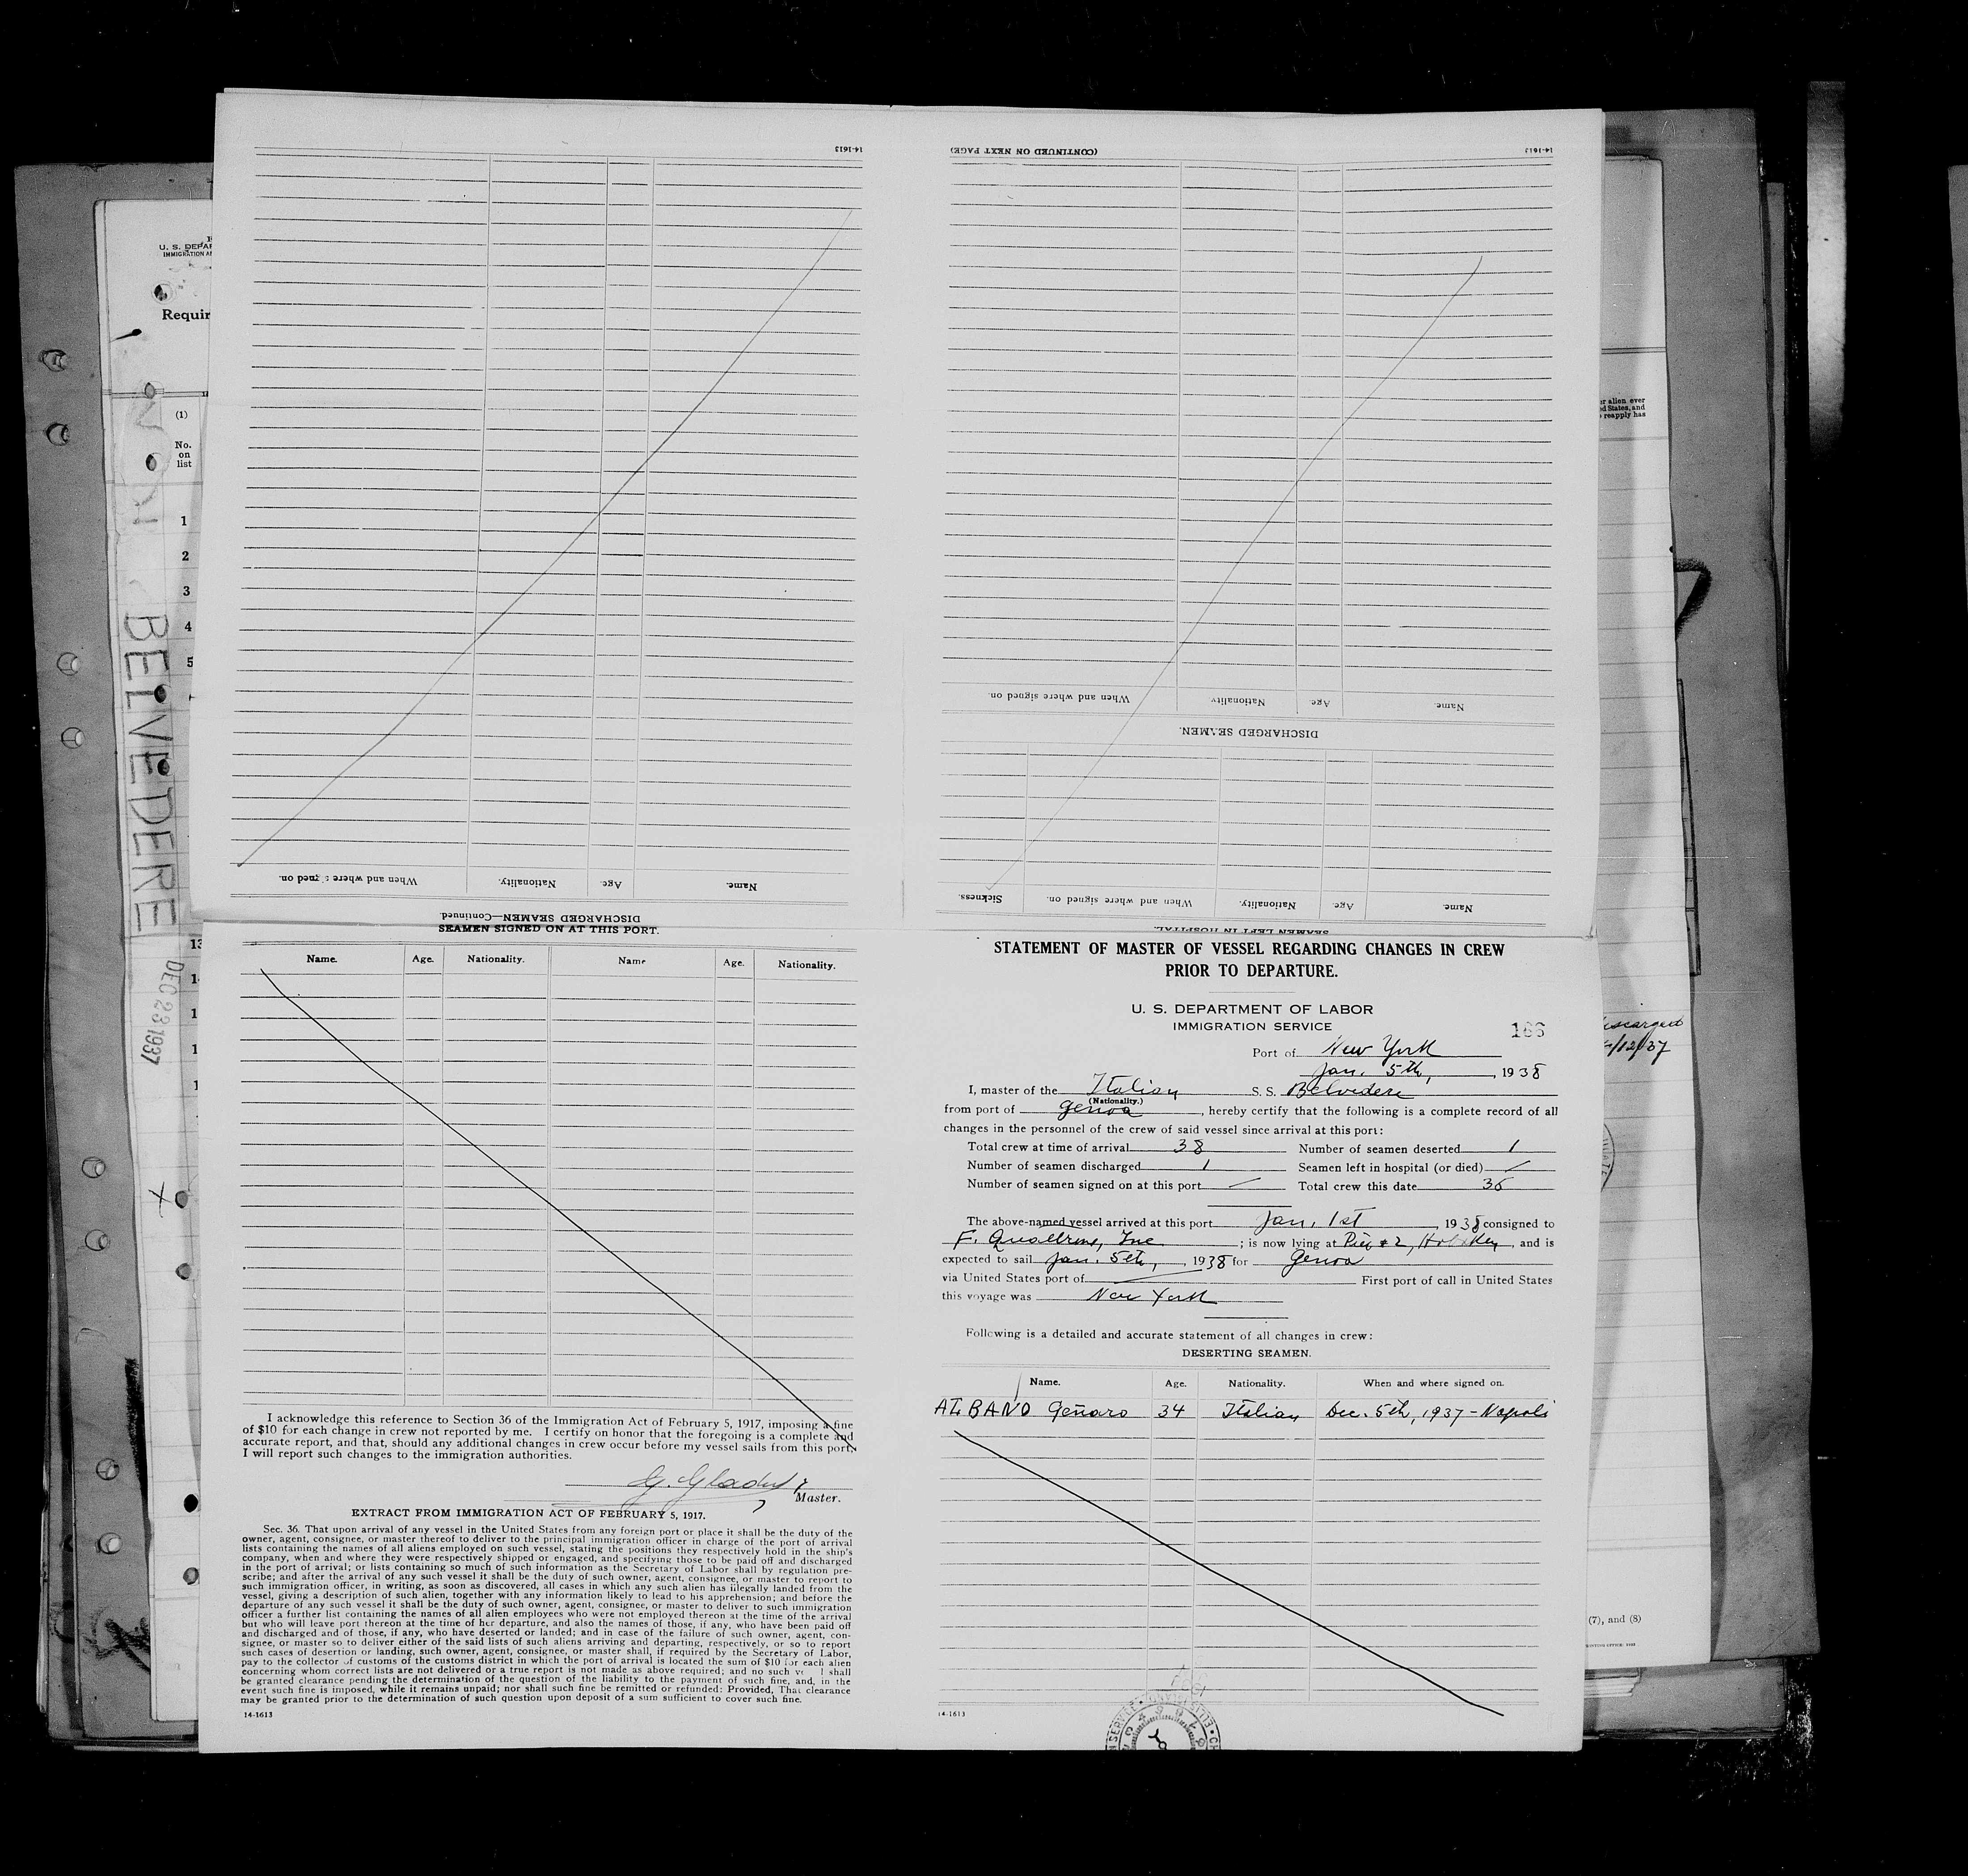 14-1613
(CONTINUED ON NEXT PAGE)
14-1613
U. S. DEPAR
IMMIGRATION AN
Requir
(1)
No.
on
list
1
2
3
4
5
BELVEDERE
DEC 23 1937
When and where signed on.
Nationality.
Age.
Name.
DISCHARGED SEAMEN—Continued.
When and where signed on.
Nationality
Age.
Name.
DISCHARGED SEAMEN.
Sickness.
When and where signed on.
Nationality.
Age.
Name.
SEAMEN LEFT IN HOSPITAL.
er alien ever
ed States, and
reapply has
SEAMEN SIGNED ON AT THIS PORT.
Name. Age. Nationality. Name Age. Nationality.
13
I acknowledge this reference to Section 36 of the Immigration Act of February 5, 1917, imposing a fine
of $10 for each change in crew not reported by me. I certify on honor that the foregoing is a complete and
accurate report, and that, should any additional changes in crew occur before my vessel sails from this port,
I will report such changes to the immigration authorities.
Master.
EXTRACT FROM IMMIGRATION ACT OF FEBRUARY 5, 1917.
Sec. 36. That upon arrival of any vessel in the United States from any foreign port or place it shall be the duty of the
owner, agent, consignee, or master thereof to deliver to the principal immigration officer in charge of the port of arrival
lists containing the names of all aliens employed on such vessel, stating the positions they respectively hold in the ship's
company, when and where they were respectively shipped or engaged, and specifying those to be paid off and discharged
in the port of arrival; or lists containing so much of such information as the Secretary of Labor shall by regulation pre-
scribe; and after the arrival of any such vessel it shall be the duty of such owner, agent, consignee, or master to report to
such immigration officer, in writing, as soon as discovered, all cases in which any such alien has illegally landed from the
vessel, giving a description of such alien, together with any information likely to lead to his apprehension; and before the
departure of any such vessel it shall be the duty of such owner, agent, consignee, or master to deliver to such immigration
officer a further list containing the names of all alien employees who were not employed thereon at the time of the arrival
but who will leave port thereon at the time of her departure, and also the names of those, if any, who have been paid off
and discharged and of those, if any, who have deserted or landed; and in case of the failure of such owner, agent, con-
signee, or master so to deliver either of the said lists of such aliens arriving and departing, respectively, or so to report
such cases of desertion or landing, such owner, agent, consignee, or master shall, if required by the Secretary of Labor,
pay to the collector of customs of the customs district in which the port of arrival is located the sum of $10 for each alien
concerning whom correct lists are not delivered or a true report is not made as above required; and no such ve l shall
be granted clearance pending the determination of the question of the liability to the payment of such fine, and, in the
event such fine is imposed, while it remains unpaid; nor shall such fine be remitted or refunded: Provided, That clearance
may be granted prior to the determination of such question upon deposit of a sum sufficient to cover such fine.
14-1613
STATEMENT OF MASTER OF VESSEL REGARDING CHANGES IN CREW
PRIOR TO DEPARTURE.
U. S. DEPARTMENT OF LABOR
IMMIGRATION SERVICE
166
Port of New York
Jan. 5th, 1938
I, master of the Italian S. S. Belvedere
(Nationality.)
from port of Genoa, hereby certify that the following is a complete record of all
changes in the personnel of the crew of said vessel since arrival at this port:
Total crew at time of arrival 38 Number of seamen deserted 1
Number of seamen discharged 1 Seamen left in hospital (or died)
Number of seamen signed on at this port Total crew this date 36
The above-named vessel arrived at this port Jan. 1st, 1938 consigned to
F. Inc ; is now lying at Pier #2, Hoboken, and is
expected to sail Jan. 5th, 1938 for Genoa
via United States port of First port of call in United States
this voyage was New York
Following is a detailed and accurate statement of all changes in crew:
DESERTING SEAMEN.
Name. Age. Nationality. When and where signed on.
ALBANO Genaro 34 Italian Dec. 5th, 1937 - Napoli
14-1613
(7), and (8)